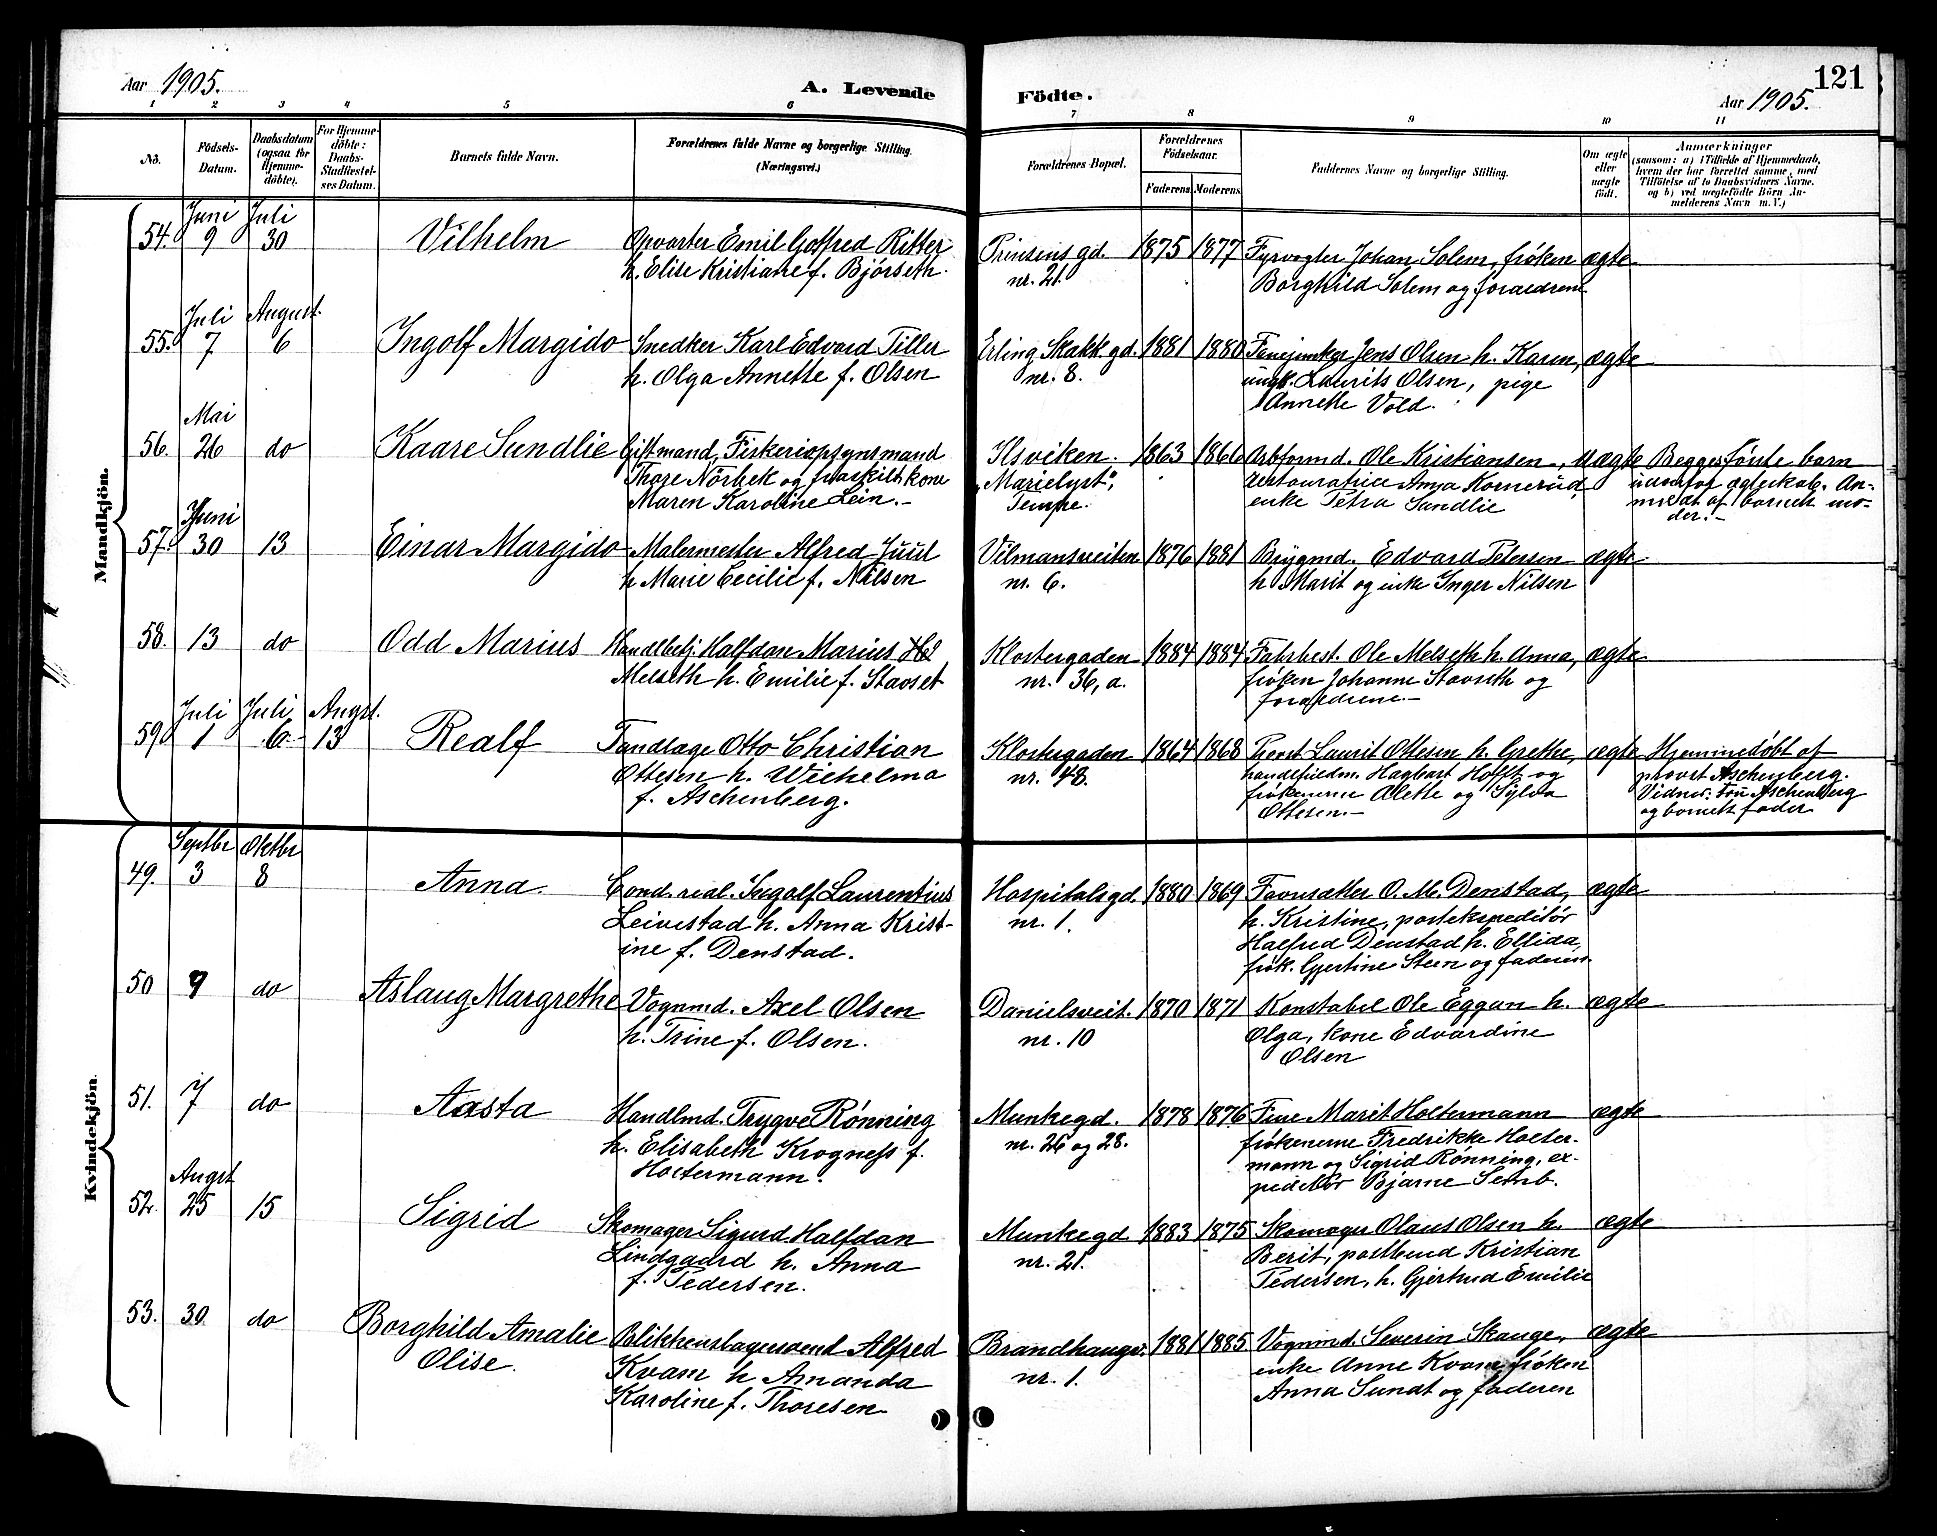 Aar 1905.
A. Levende
Födte.
121
Aar 1905.
1 2 3 4 5 6 7 8 9 10 11
No.
Födsels-Datum.
Daabsdatum (ogsaa for Hjemme-döbte).
For Hjemme-döbte: Daabs-Stadfæstel-ses Datum.
Barnets fulde Navn.
Forældrenes fulde Navne og borgerlige Stilling. (Næringsvei.)
Forældrenes Bopæl.
Forældrenes Födselsaar.
Faderens. Moderens.
Faddernes Navne og borgerlige Stilling.
Om ægte eller uægte födt.
Anmærkninger
(saasom: a) i Tilfælde af Hjemmedaab, hvem der har forrettet samme, med Tilföielse af to Daabsvidners Navne. og b) ved uægtefödte Börn An-melderens Navn m. V.)
Mandkjön.
54. Juni 9 Juli 30 Vilhelm
Opvarter Emil Gotfred Ritter
h. Elise Kristiane f. Bjørseth.
Prinsens gd. nr. 21. 1875 1877
Fyrvogter Johan Solem, frøken
Borghild Solem og forældrene
ægte
55. Juli 7 August 6 Ingolf Margido
Snedker Karl Edvard Tiller
h. Olga Annette f. Olsen
Erling Skakk. gd. nr. 8. 1881 1880
Fanejunker Jens Olsen h. Karen,
ungk. Laurits Olsen, pige
Annette Vold.
ægte
56. Mai 26 do Kaare Sundlie
Giftmand, Fiskeriopsynsmand
Thore Nörbek og fraskilt kone
Maren Karoline Lein.
Ilsviken. "Marielyst", Tempe. 1863 1866
Arbformd. Ole Kristiansen,
restauratrice Anna Kornerud,
enke Petra Sandlie
uægte
Begges første barn
udenfor ægteskab. An-
meldt af barnets mo-
der.
57. Juni 30 13 Einar Margido
Malermester Alfred Juul
h Marie Cecilie f. Nilsen
Vilmansveiten nr. 6. 1876 1881
Brygmd. Edvard Petersen
h Marit og enke Inger Nilsen
ægte
58. 13 do Odd Marius
Handlbetj. Halfdan Marius
Melseth h. Emilie f. Stavset
Klostergaden nr. 36, a. 1884 1884
Fabrbest. Ole Melseth h. Anna,
frøken Johanne Stavseth og
forældrene.
ægte
59. Juli 1 Juli 6 Augst. 13 Realf
Tandlæge Otto Christian
Ottesen h. Wilhelma
f. Aschenberg.
Klostergaden nr. 48. 1864 1868
Provst Laurit Ottesen h. Grethe,
handelsfuldm. Hagbart Hofft og
frøkenerne Alette og Sylva
Ottesen.
ægte
Hjemmedøbt af
provst Aschenberg.
Vidner: Fru Aschenberg
og barnets fader
Kvindekjön.
49. Septbr 3 Oktbr 8 Anna
Cand. real. Ingolf Laurentius
Leivestad h. Anna Krist-
ine f. Denstad.
Hospitalsgd. nr. 1. 1880 1869
Favnsætter O. M. Denstad,
h. Kristine, postekspeditør
Halfred Denstad h. Ellida,
frøk. Gjertine Steen og faderen
ægte
50 9 do Aslaug Margrethe
Vognmd. Axel Olsen
h. Trine f. Olsen.
Danielsveit. nr. 10 1870 1871
Konstabel Ole Eggan h.
Olga, kone Edvardine
Olsen
ægte
51. 7 do Aasta
Handlmd. Trygve Rønning
h. Elisabeth Krogness f.
Holtermann.
Munkegd. nr. 26 og 28. 1878 1876
Frue Marit Holtermann
frøkenerne Fredrikke Holter-
mann og Sigrid Rønning, ex-
peditör Bjarne Semb.
ægte
52. Augst 25 15 Sigrid
Skomager Sigurd Halfdan
Lindgaard h. Anna
f. Pedersen.
Munkegd nr. 21. 1883 1875
Skomager Olaus Olsen h.
Berit, postbud Kristian
Pedersen, h. Gjertrud Emilie
ægte
53. 30 do Borghild Amalie
Olise.
Blikkenslagersvend Alfred
Kvam h Amanda
Karoline f. Thoresen
Brandhaugv. nr. 1. 1881 1885
Vognmd. Severin Skauge,
enke Anne Kvam, frøken
Anna Sundt og faderen
ægte